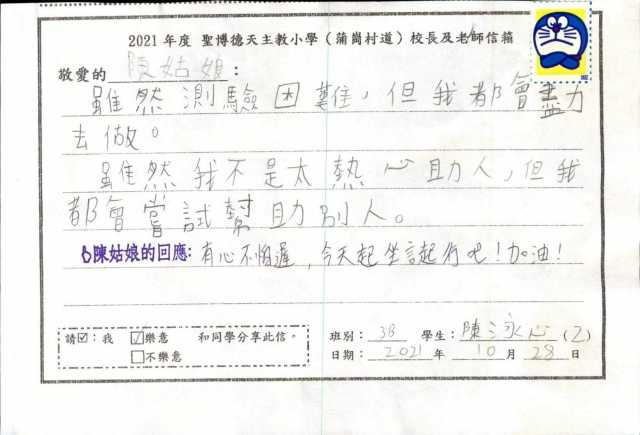 2021 年度 聖博德天主教小學（蒲崗村道）校長及老師信箱
敬愛的 陳姑娘：
雖然測驗困難，但我都會盡力
去做。
雖然我不是太熱心助人，但我
都會嘗試幫助別人。
陳姑娘的回應: 有心不怕遲，今天起坐言起行吧！加油！
請☑：我 ☑樂意 和同學分享此信。
□不樂意
班別： 3B 學生： 陳泳心 (2)
日期： 2021 年 10 月 28 日